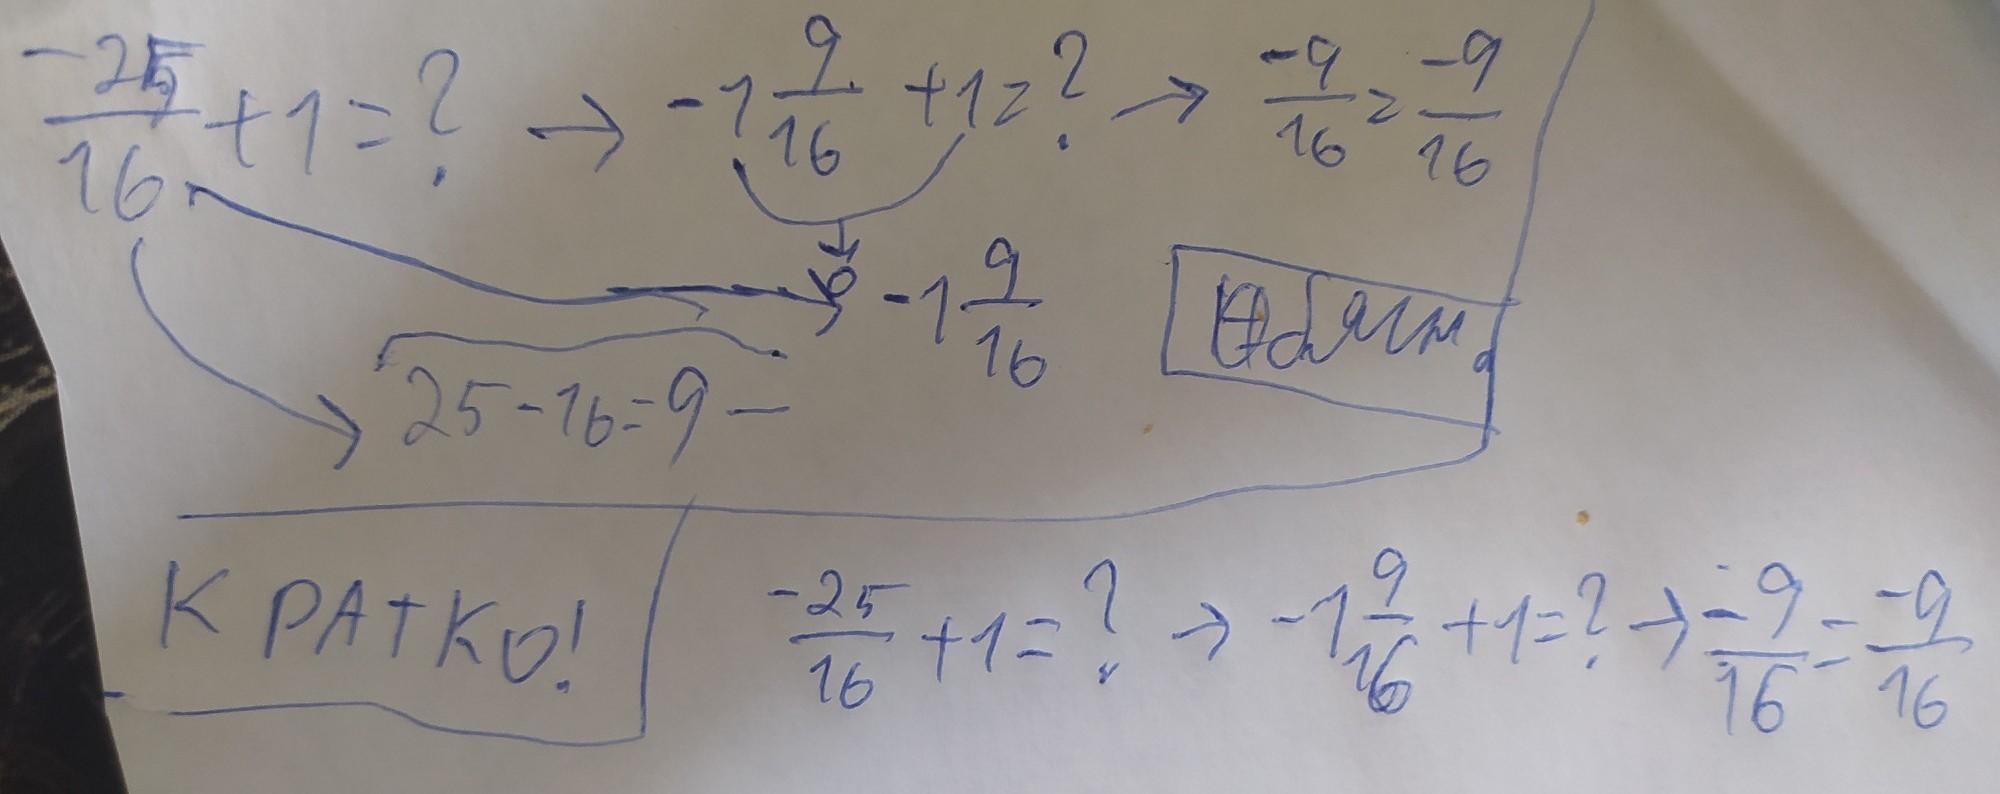 -25/16 + 1 = ? → -1 9/16 + 1 = ? → -9/16 = -9/16
0 -1 9/16
25-16=9 —
КРАТКО!
-25/16 + 1 = ? → -1 9/16 + 1 = ? → -9/16 = -9/16